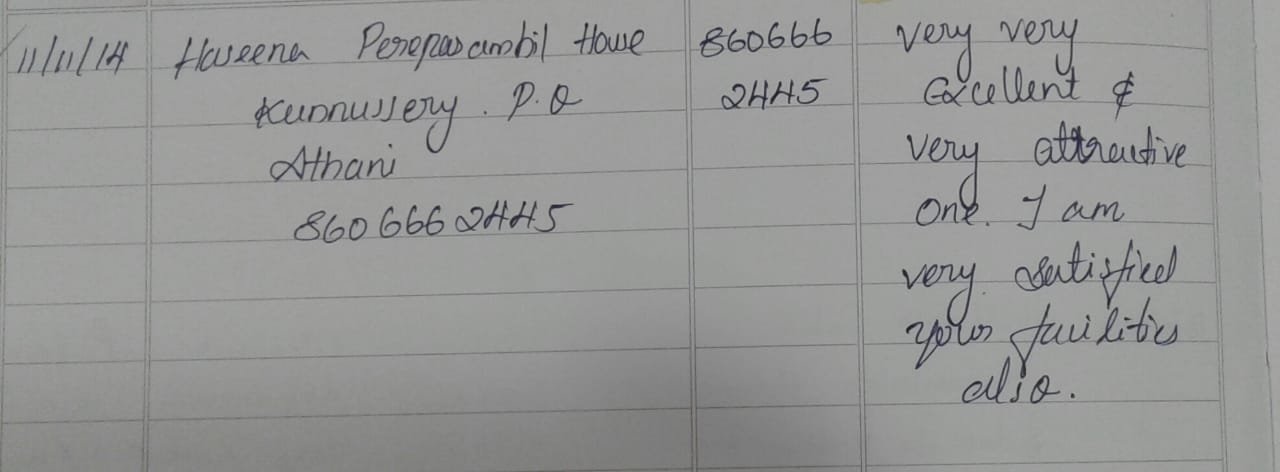 11/11/14
Haseena Perepparambil House
Kunnussery. P.O
Athani
860 666 2445
860666
2445
very very
Excellent &
very attractive
One. I am
very satisfied
your facilities
also.